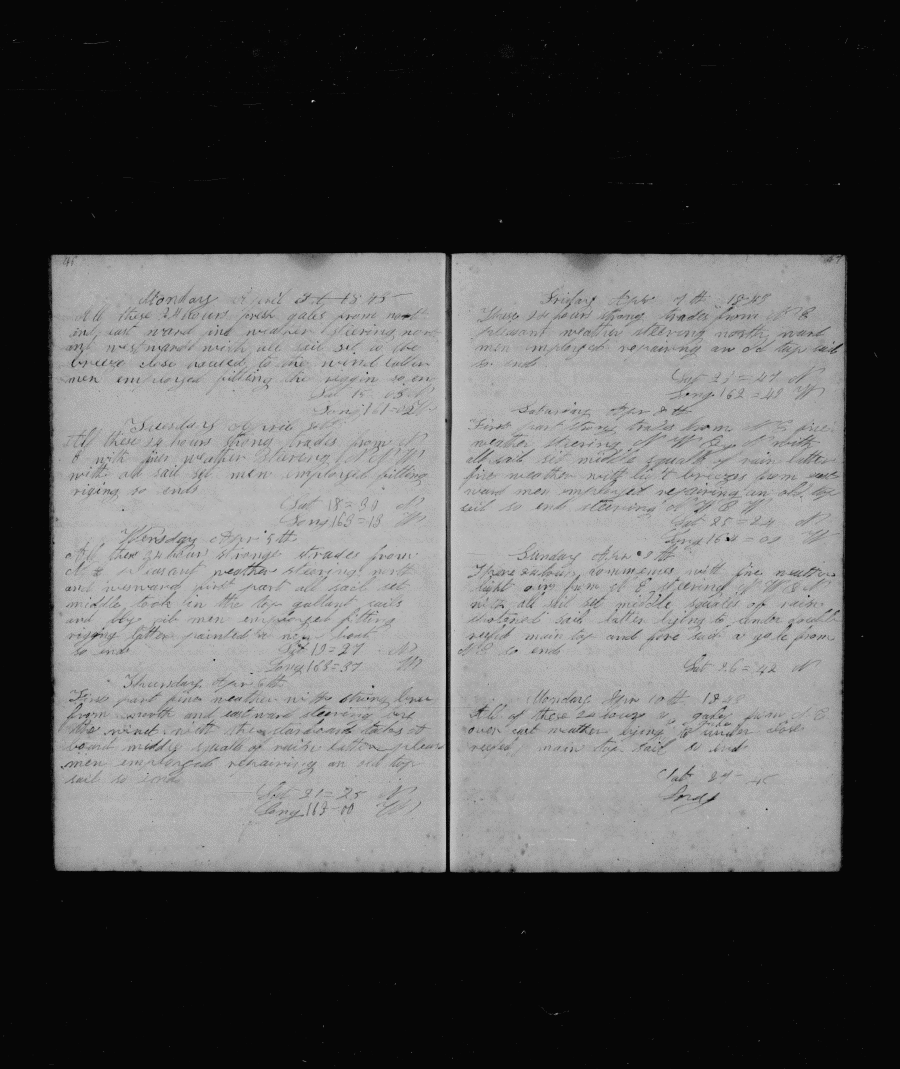 Monday April 3d 1848
All these 24 hours fresh gales from north
and east ward and weather steering nor
and westwards with all sail set to the
breeze close to the wind latter
men employed fitting the riggin so end
Lat 15 = 05 N
Long 161 = W
Tuesday April 4th
All these 24 hours strong trades from N
E with fine weather steering N W
with all sail set men employed fitting
riging so ends
Lat 18 = N
Long 163 = 13 W
Wensday Apr 5th
All these 24 hours strong trades from
N E pleasant weather steering north
and westward first part all sail set
middle took in the top gallant sails
and men employed fitting
riging latter painted a new boat
so ends Lat 19 = 27 N
Long 163 = 37 W
Thursday Apr 6th
First part fine weather with strong
from north and eastward steering
the wind with the larboard tacks
board middle squalls of rain latter pleas
men employed repairing an old top
sail so ends
Lat 21 = 25 N
Long 163 = 00 W
47
Friday Apr 7th 1848
These 24 hours strong trades from N E
pleasant weather steering north ward
men employed repairing an old top sail
so ends
Lat 23 = 47 N
Long 162 = 48 W
Saturday Apr 8th
First part strong trades from N E fine
weather steering N W by N with
all sail set middle squalls of rain latter
fine weather with light breezes from
ward men employed repairing an old top
sail so end steering N W
Lat 25 = 24 N
Long 164 = 00 W
Sunday Apr 9th
These 24 hours commences with fine weather
light airs from N E steering N W
with all sail set middle squalls of rain
sail latter lying to under double
reefed main top and fore sail a gale from
N E so ends
Lat 26 = 42 N
Monday Apr 10th 1848
All of these 24 hours gales from N E
over cast weather lying to under close
reefed main top sail so ends
Lat 27 = 45
Long